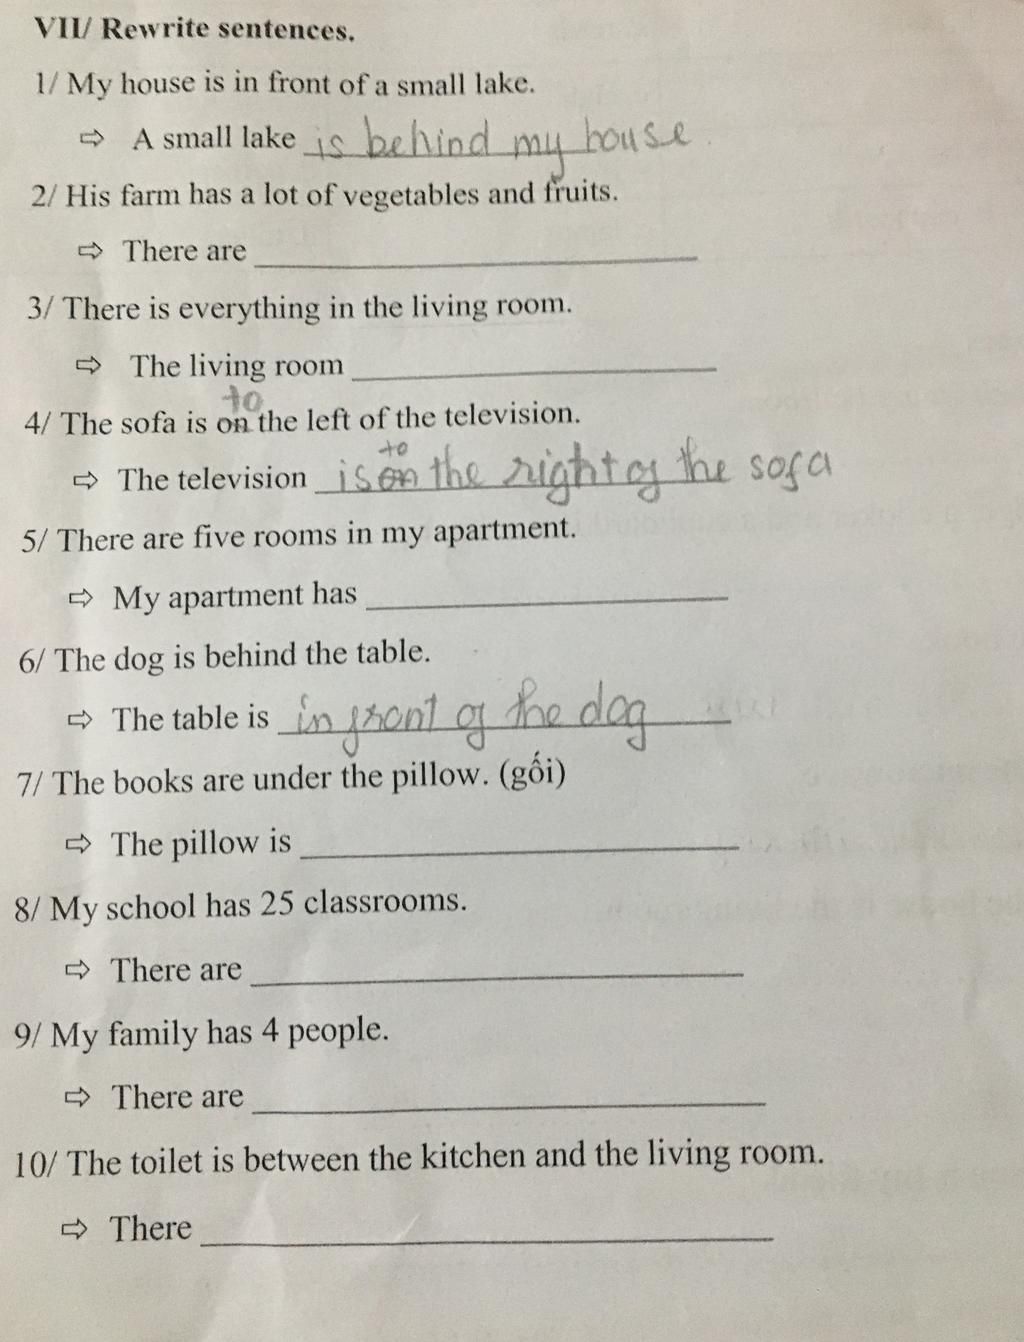 VII/ Rewrite sentences.
1/ My house is in front of a small lake.
⇨ A small lake is behind my house.
2/ His farm has a lot of vegetables and fruits.
⇨ There are ____________
3/ There is everything in the living room.
⇨ The living room ____________
to
4/ The sofa is on the left of the television.
to
⇨ The television is on the right of the sofa
5/ There are five rooms in my apartment.
⇨ My apartment has ____________
6/ The dog is behind the table.
⇨ The table is in front of the dog
7/ The books are under the pillow. (gối)
⇨ The pillow is ____________
8/ My school has 25 classrooms.
⇨ There are ____________
9/ My family has 4 people.
⇨ There are ____________
10/ The toilet is between the kitchen and the living room.
⇨ There ____________